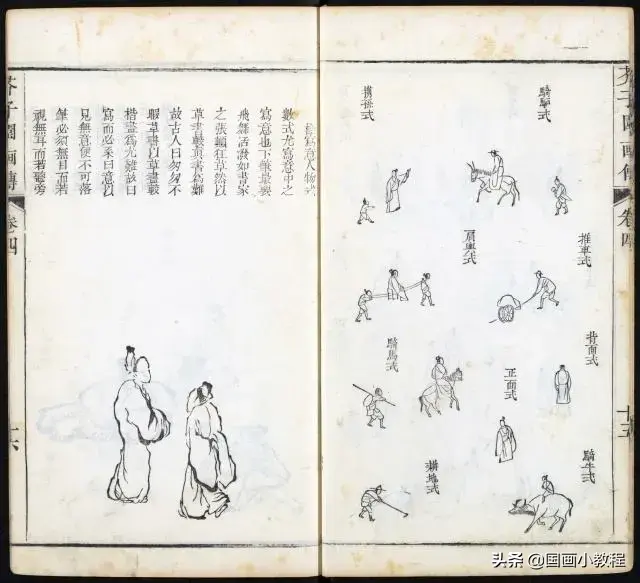 芥子園画傳
卷四
十五
騎驢式
携孫式
推車式
肩輿式
背面式
正面式
騎馬式
騎牛式
耕地式
極寫意人物式
數式尤寫意中之
寫意也下筆最要
飛舞活潑如書家
之張顛狂草然以
草書較真書爲難
故古人曰匆匆不
暇草書以草畫較
楷畫爲尤難故曰
寫而必系曰意以
見無意便不可落
筆必須無目而若
視無耳而若聽旁
芥子園画傳
卷四
十六
头条 @国画小教程